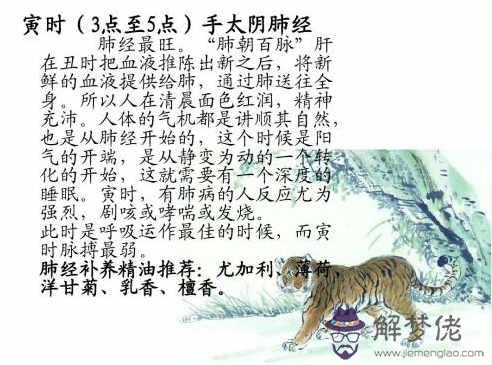 寅时（3,点至5,点）手太阴肺经
肺经最旺。“肺朝百脉”肝
在丑时把血液推陈出新之后，将新
鲜的血液提供给肺，通过肺送往全
身。所以人在清晨面色红润，精神
充沛。人体的气机都是讲顺其自然，
也是从肺经开始的，这个时候是阳
气的开端，是从静变为动的一个转
化的开始，这就需要有一个深度的
睡眠。寅时，有肺病的人反应尤为
强烈，剧咳或哮喘或发烧。
此时是呼吸运作最佳的时候，而寅
时脉搏最弱。
肺经补养精油推荐：尤加利、薄荷、
洋甘菊、乳香、檀香。
解梦佬
www.jiemenglao.com